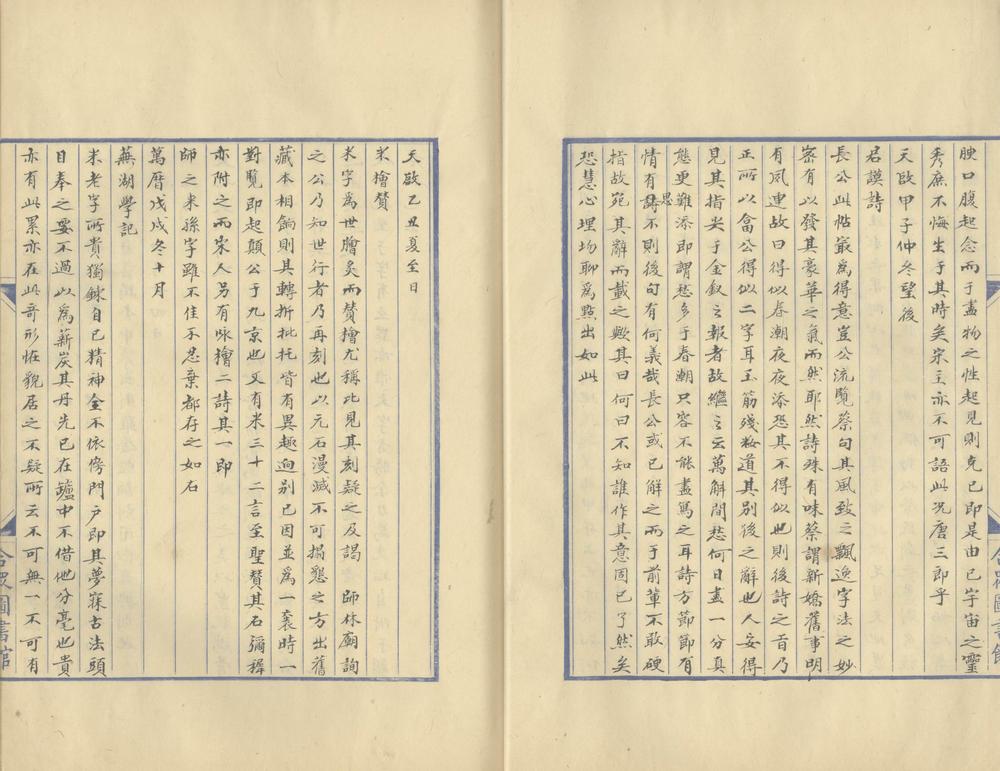 腴口腹起念而于盡物之性起見則克己即是由已宇宙之靈
秀庶不悔生于其時矣宋玉亦不可語此况唐三郎乎
天啟甲子仲冬望後
君謨詩
長公此帖最為得意豈公流覽蔡句其風致之飄逸字法之妙
密有以發其豪華之氣而然耶然詩殊有味蔡謂新嬌舊事明
有夙連故曰得似春潮夜夜添恐其不得似也則後詩之首乃
正所以畣公得似二字耳玉筋殘粧道其別後之辭也人安得
見其指尖于金釵之報者故繼之云萬斛閒愁何日盡一分真
態更難添即謂愁多于春潮只容不能盡篤之耳詩方節節有
情有思不則後句有何義哉長公或已解之而于前輩不敢硬
指故宛其辭而載之歟其曰何曰不知誰作其意固已了然矣
恐慧心埋均聊為點出如此
天啟乙丑夏至日
米檜贊
米字為世膾炙而贊檜尤稱比見其刻疑之及謁 師休廟詢
之公乃知世行者乃再刻也以元石漫滅不可搨懇之方出舊
藏本相餉則其轉折批托皆有異趣逈别已因並為一袠時一
對覽即起顛公于九京也又有米三十二言至聖贊其石彌稱
亦附之而宋人另有咏檜二詩其一即
師之米孫字雖不佳不忍棄都存之如石
萬曆戊戌冬十月
蕪湖學記
米老字所貴獨錸自已精神全不依傍門户即其夢寐古法頭
目奉之要不過以為薪炭其丹先已在罏中不借他分毫也貴
亦有此累亦在此奇形恠貌居之不疑所云不可無一不可有
合眾圖書館
合眾圖書館